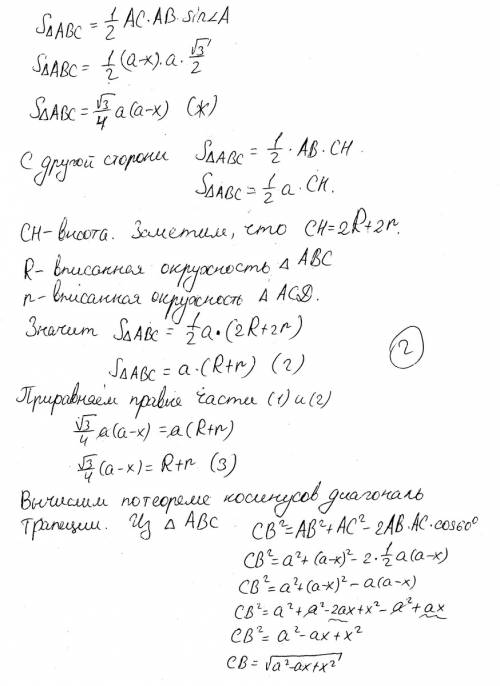 S△ABC = 1/2 AC·AB·sin∠A
S△ABC = 1/2 (a-x)·a·√3/2
S△ABC = √3/4 a(a-x) (ж)
С другой стороны S△ABC = 1/2·AB·CH
S△ABC = 1/2 a·CH.
CH- высота. Заметим, что CH=2R+2r.
R- вписанная окружность △ABC
r- вписанная окружность △ACD.
Значит S△ABC = 1/2 a·(2R+2r)
S△ABC = a·(R+r) (2)
2
Приравняем правые части (1) и (2)
√3/4 a(a-x) = a(R+r)
√3/4 (a-x) = R+r (3)
Вычислим по теореме косинусов диагональ
трапеции. Из △ABC CB²=AB²+AC²-2AB·AC·cos60°
CB²=a²+(a-x)²-2·1/2 a(a-x)
CB²=a²+(a-x)²-a(a-x)
CB²=a²+a²-2ax+x²-a²+ax
CB²=a²-ax+x²
CB=√a²-ax+x²